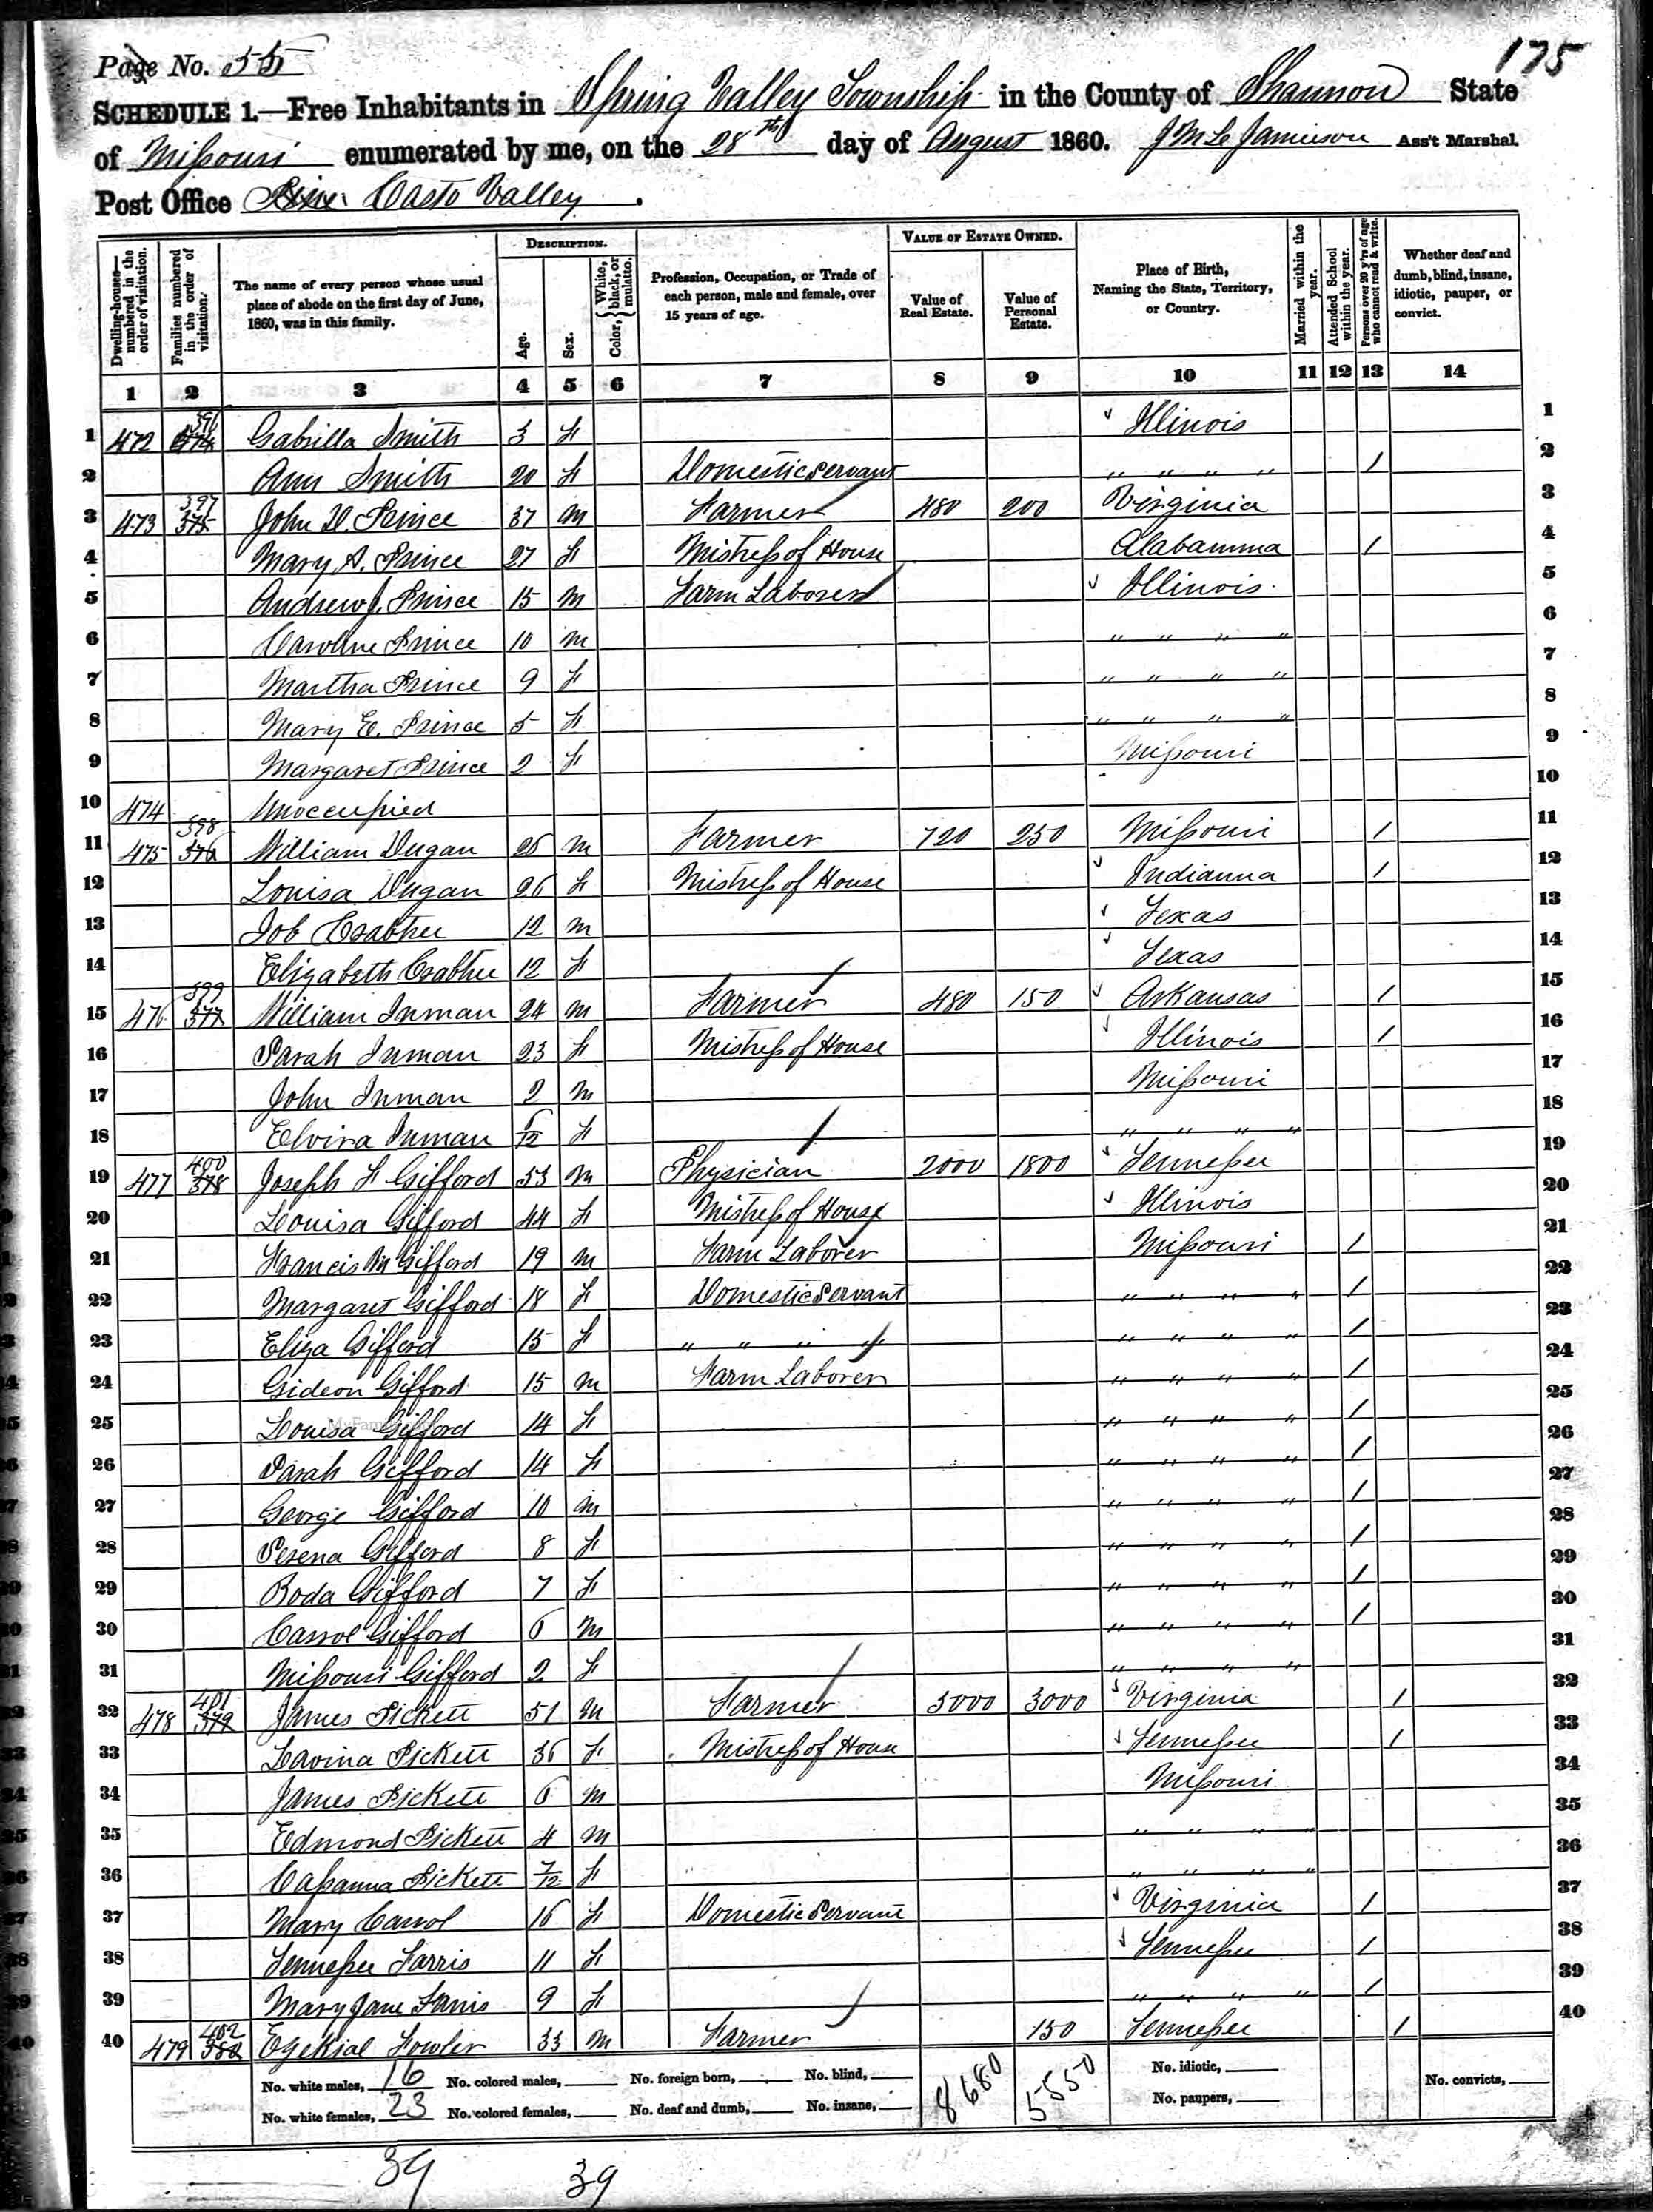 175
Page No. 55
SCHEDULE 1.—Free Inhabitants in Spring Valley Township in the County of Shannon State
of Missouri enumerated by me, on the 28th day of August 1860. Jamieson Ass't Marshal.
Post Office Casto Valley.
DESCRIPTION. VALUE OF ESTATE OWNED.
Dwelling-houses—numbered in the order of visitation. Families numbered in the order of visitation. The name of every person whose usual place of abode on the first day of June, 1860, was in this family. Age. Sex. Color, {White, black, or mulatto. Profession, Occupation, or Trade of each person, male and female, over 15 years of age. Value of Real Estate. Value of Personal Estate. Place of Birth, Naming the State, Territory, or Country. Married within the year. Attended School within the year. Persons over 20 y'rs of age who cannot read & write. Whether deaf and dumb, blind, insane, idiotic, pauper, or convict.
1 2 3 4 5 6 7 8 9 10 11 12 13 14
1 472 396 374 Gabrilla Smith 3 f Illinois 1
2 Ann Smith 20 f Domestic Servant " " " " / 2
3 473 397 375 John D. Prince 37 m Farmer 480 200 Virginia 3
4 Mary A. Prince 27 f Mistress of House Alabamma / 4
5 Andrew J. Prince 15 m Farm Laborer Illinois 5
6 Caroline Prince 10 m " " " " 6
7 Martha Prince 9 f " " " " 7
8 Mary E. Prince 5 f " " " " 8
9 Margaret Prince 2 f Missouri 9
10 474 Unoccupied 10
11 475 398 376 William Dugan 25 m Farmer 720 250 Missouri / 11
12 Louisa Dugan 26 f Mistress of House Indianna / 12
13 Job Crabtree 12 m Texas 13
14 Elizabeth Crabtree 12 f Texas 14
15 476 399 377 William Inman 24 m Farmer 480 150 Arkansas / 15
16 Sarah Inman 23 f Mistress of House Illinois / 16
17 John Inman 2 m Missouri 17
18 Elvira Inman 6/12 f " " " " 18
19 477 400 378 Joseph F Gifford 53 m Physician 2000 1800 Tennessee 19
20 Louisa Gifford 44 f Mistress of House Illinois 20
21 Francis M Gifford 19 m Farm Laborer Missouri / 21
22 Margaret Gifford 18 f Domestic Servant " " " " / 22
23 Eliza Gifford 15 f " " " " " " " " / 23
24 Gideon Gifford 15 m Farm Laborer " " " " / 24
25 Louisa Gifford 14 f " " " " / 25
26 Sarah Gifford 14 f " " " " / 26
27 George Gifford 10 m " " " " / 27
28 Serena Gifford 8 f " " " " / 28
29 Roda Gifford 7 f " " " " / 29
30 Carrol Gifford 6 m " " " " / 30
31 Missouri Gifford 2 f " " " " 31
32 478 401 379 James Pickett 51 m Farmer 5000 3000 Virginia / 32
33 Lavina Pickett 36 f Mistress of House Tennessee / 33
34 James Pickett 6 m Missouri 34
35 Edmond Pickett 4 m " " " " 35
36 Cassanna Pickett 7/12 f " " " " 36
37 Mary Carrol 16 f Domestic Servant Virginia / 37
38 Tennessee Farris 11 f Tennessee / 38
39 Mary Jane Farris 9 f " " " " / 39
40 479 402 380 Ezekial Fowler 33 m Farmer 150 Tennessee / 40
No. white males, 16 No. colored males, No. foreign born, No. blind, 8680 5550 No. idiotic,
No. white females, 23 No. colored females, No. deaf and dumb, No. insane, No. paupers, No. convicts,
39 39